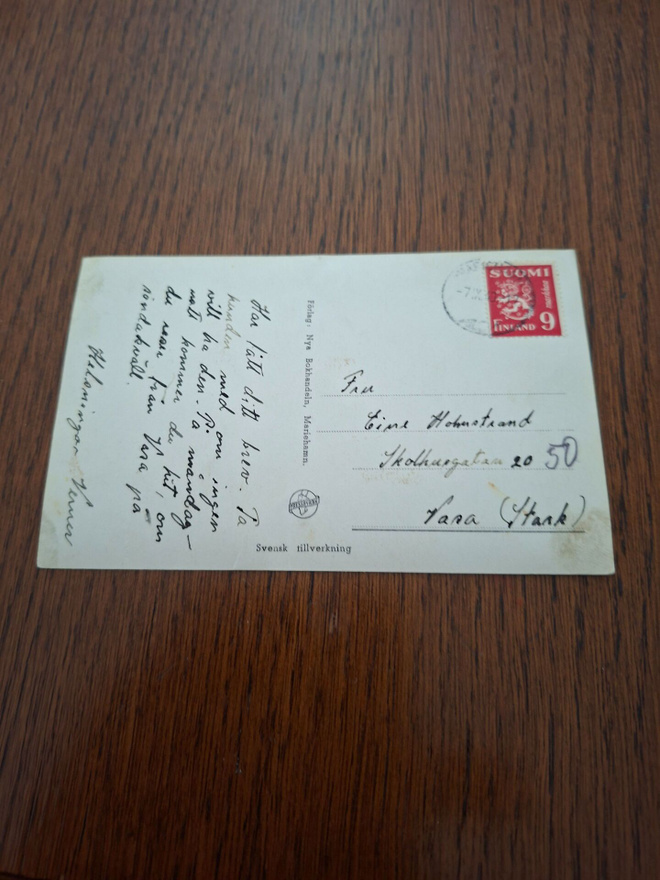 Har fått ditt brev. Ta
hunden med om ingen
vill ha den. På måndag
natt kommer du hit, om
du reser från Vasa på
söndakväll.
Helsningar Verner
Förlag: Nya Bokhandeln, Mariehamn.
Svensk tillverkning
SUOMI
FINLAND 9
markkaa
Fru
Eine Holmstrand
Skolhusgatan 20
50
Vasa (Stark)